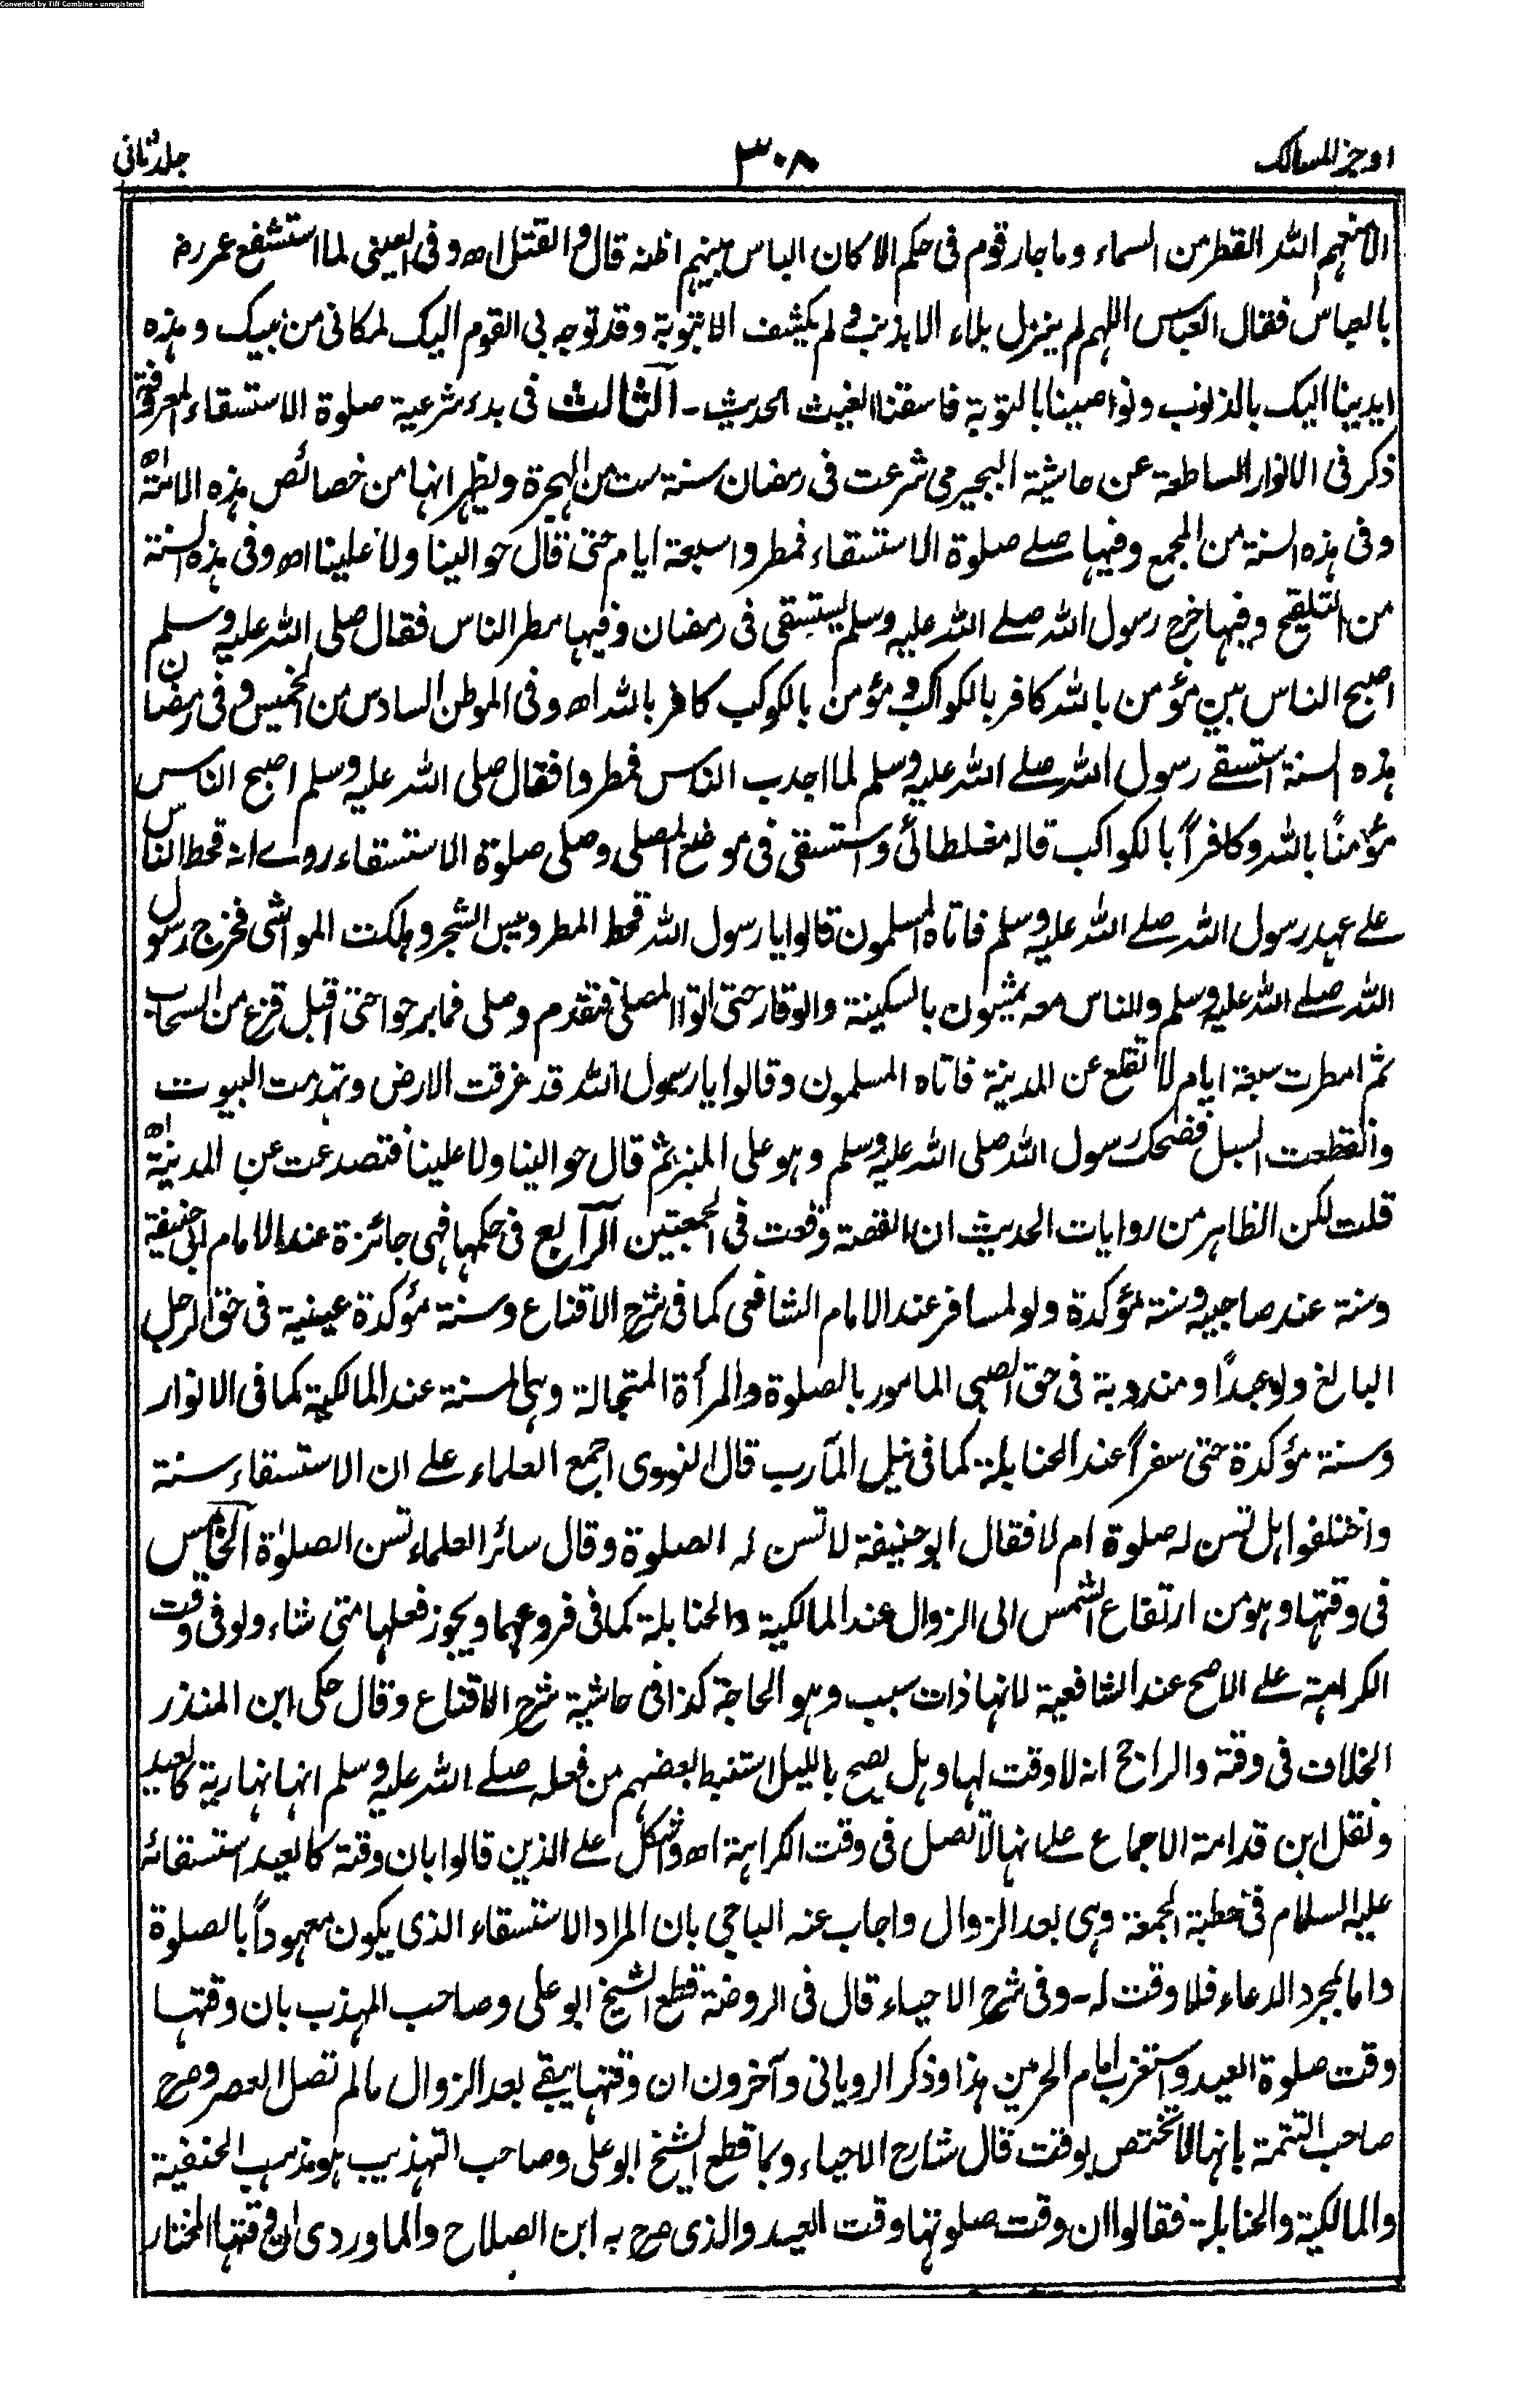 Converted by Tiff Combine - unregistered
اوجز المسالک
۳۰۸
جلد ثانی
الا منعہم اللہ القطر من السماء وما جار قوم فی حکم الا کان الباس بینہم اظنہ قال والقتل اھ وفی العینی لما استشفع عمر رض
بالعباس فقال العباس اللہم لم ینزل بلاء الا بذنب ولم یکشف الا بتوبۃ وقد توجہ بی القوم الیک لمکانی من نبیک وہذہ
ایدینا الیک بالذنوب ونواصینا بالتوبۃ فاسقنا الغیث الحدیث۔ الثالث فی بدء شرعیۃ صلوۃ الاستسقاء المعروفۃ
ذکر فی الانوار الساطعۃ عن حاشیۃ البجیرمی شرعت فی رمضان سنۃ ست من الہجرۃ ویظہر انہا من خصائص ہذہ الامۃ اھ
وفی ہذہ السنۃ من المجمع وفیہا صلے صلوۃ الاستسقاء فمطروا سبعۃ ایام حتی قال حوالینا ولا علینا اھ وفی ہذہ السنۃ
من التلقیح وفیہا خرج رسول اللہ صلے اللہ علیہ وسلم یستسقی فی رمضان وفیہا مطر الناس فقال صلی اللہ علیہ وسلم
اصبح الناس بین مؤمن باللہ کافر بالکواکب ومؤمن بالکوکب کافر باللہ اھ وفی الموطن السادس من الخمیس وفی رمضان
ہذہ السنۃ استسقے رسول اللہ صلے اللہ علیہ وسلم لما اجدب الناس فمطروا فقال صلی اللہ علیہ وسلم اصبح الناس
مؤمنًا باللہ وکافراً بالکواکب قالہ مغلطائی واستسقی فی موضع المصلی وصلی صلوۃ الاستسقاء روے انہ قحط الناس
علے عہد رسول اللہ صلے اللہ علیہ وسلم فاتاہ المسلمون قالوا یا رسول اللہ قحط المطر ویبس الشجر وہلکت المواشی فخرج رسول
اللہ صلے اللہ علیہ وسلم والناس معہ یمشون بالسکینۃ والوقار حتی اتوا المصلی فتقدم وصلی فما برحوا حتی اقبل قزع من السحاب
ثم امطرت سبعۃ ایام لا تقلع عن المدینۃ فاتاہ المسلمون وقالوا یا رسول اللہ قد غرقت الارض وتہدمت البیوت
وانقطعت السبل فضحک رسول اللہ صلی اللہ علیہ وسلم وہو علی المنبر ثم قال حوالینا ولا علینا فتصدعت عن المدینۃ اھ
قلت لکن الظاہر من روایات الحدیث ان القصۃ وقعت فی الجمعتین الرابع فی حکمہا فہی جائزۃ عند الامام ابی حنیفۃ
وسنۃ عند صاحبیہ وسنۃ مؤکدۃ ولو لمسافر عند الامام الشافعی کما فی شرح الاقناع وسنۃ مؤکدۃ عینیۃ فی حق الرجل
البالغ ولو عبداً ومندوبۃ فی حق الصبی المامور بالصلوۃ والمرأۃ المتجالۃ وہی السنۃ عند المالکیۃ کما فی الانوار
وسنۃ مؤکدۃ حتی سفراً عند الحنابلۃ کما فی نیل المآرب قال النووی اجمع العلماء علے ان الاستسقاء سنۃ
واختلفوا ہل تسن لہ صلوۃ ام لا فقال ابو حنیفۃ لا تسن لہ الصلوۃ وقال سائر العلماء تسن الصلوٰۃ الخامس
فی وقتہا وہو من ارتفاع الشمس الی الزوال عند المالکیۃ والحنابلۃ کما فی فروعہما ویجوز فعلہا متی شاء ولو فی وقت
الکراہۃ علے الاصح عند الشافعیۃ لانہا ذات سبب وہو الحاجۃ کذا فی حاشیۃ شرح الاقناع وقال حکی ابن المنذر
الخلاف فی وقتہ والراجح انہ لا وقت لہا وہل یصح باللیل استنبط بعضہم من فعلہ صلے اللہ علیہ وسلم انہا نہاریۃ کالعید
ونقل ابن قدامۃ الاجماع علے انہا لا تصل فی وقت الکراہۃ اھ واشکل علے الذین قالوا بان وقتہ کالعید استسقائہ
علیہ السلام فی خطبۃ الجمعۃ وہی بعد الزوال واجاب عنہ الباجی بان المراد الاستسقاء الذی یکون معہوداً بالصلوۃ
واما لمجرد الدعاء فلا وقت لہ۔ وفی شرح الاحیاء قال فی الروضۃ قطع الشیخ ابو علی وصاحب المہذب بان وقتہا
وقت صلوۃ العید واستغرب امام الحرمین ہذا وذکر الرویانی وآخرون ان وقتہا یبقے بعد الزوال مالم تصل العصر وصرح
صاحب التتمۃ بانہا لا تختص بوقت قال شارح الاحیاء وبما قطع الشیخ ابو علی وصاحب التہذیب ہو مذہب الحنفیۃ
والمالکیۃ والحنابلۃ فقالوا ان وقت صلوتہا وقت العید والذی صرح بہ ابن الصلاح والماوردی ان وقتہا المختار